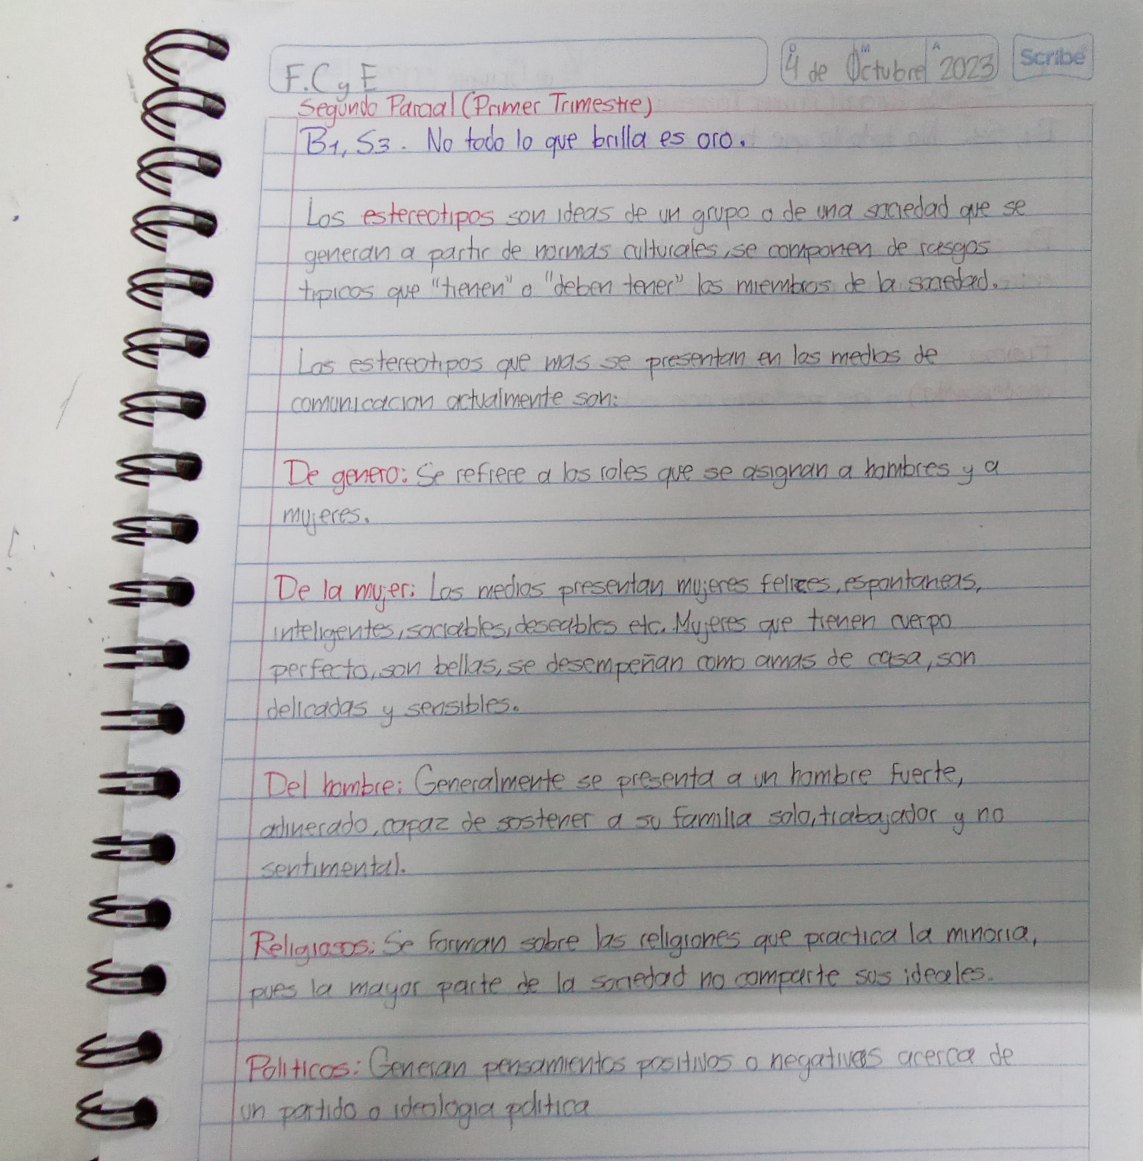 F.C y E
4 de Octubre 2023
D M A
Scribe
Segundo Parcial (Primer Trimestre)
B1, S3. No todo lo que brilla es oro.
Los estereotipos son ideas de un grupo o de una sociedad que se
generan a partir de normas culturales, se componen de rasgos
tipicos que "tienen" o "deben tener" los miembros de la sociedad.
Los estereotipos que mas se presentan en los medios de
comunicacion actualmente son:
De genero: Se refiere a los roles que se asignan a hombres y a
mujeres.
De la mujer: Los medios presentan mujeres felices, espontaneas,
inteligentes, sociables, deseables etc. Mujeres que tienen cuerpo
perfecto, son bellas, se desempeñan como amas de casa, son
delicadas y sensibles.
Del hombre: Generalmente se presenta a un hombre fuerte,
adinerado, capaz de sostener a su familia solo, trabajador y no
sentimental.
Religiosos: Se forman sobre las religiones que practica la minoria,
pues la mayor parte de la sociedad no comparte sus ideales.
Politicos: Generan pensamientos positivos o negativos acerca de
un partido o ideologia politica